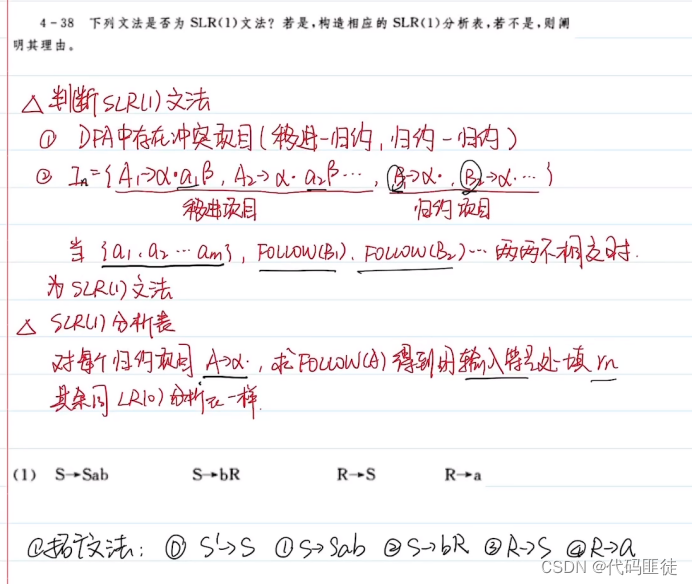 4-38 下列文法是否为 SLR(1)文法?若是,构造相应的 SLR(1)分析表,若不是,则阐
明其理由。
△ 判断SLR(1)文法
① DFA中存在冲突项目(移进-归约,归约-归约)
② In={A₁→α·a₁β, A₂→α·a₂β…, B₁→α·, B₂→α·…}
移进项目 归约项目
当 {a₁,a₂…am}, FOLLOW(B₁), FOLLOW(B₂)…两两不相交时.
为SLR(1)文法
△ SLR(1)分析表
对每个归约项目 A→α·, 求FOLLOW(A)得到的输入符号处填 rn
其余同LR(0)分析表一样.
(1) S→Sab S→bR R→S R→a
①拓广文法: ⓪ S'→S ① S→Sab ② S→bR ③ R→S ④ R→a
CSDN @代码匪徒